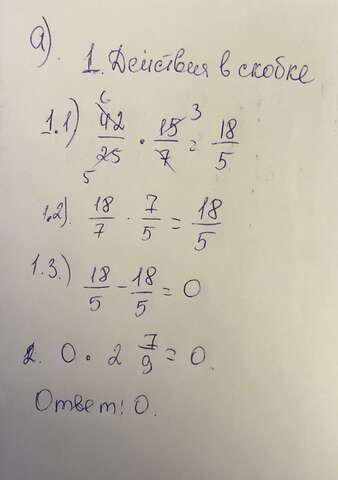 а).
1. Действия в скобке
1.1) 42/25 · 15/7 = 18/5
6 5 3
1.2). 18/7 · 7/5 = 18/5
1.3.) 18/5 - 18/5 = 0
2. 0 · 2 7/9 = 0.
Ответ: 0.